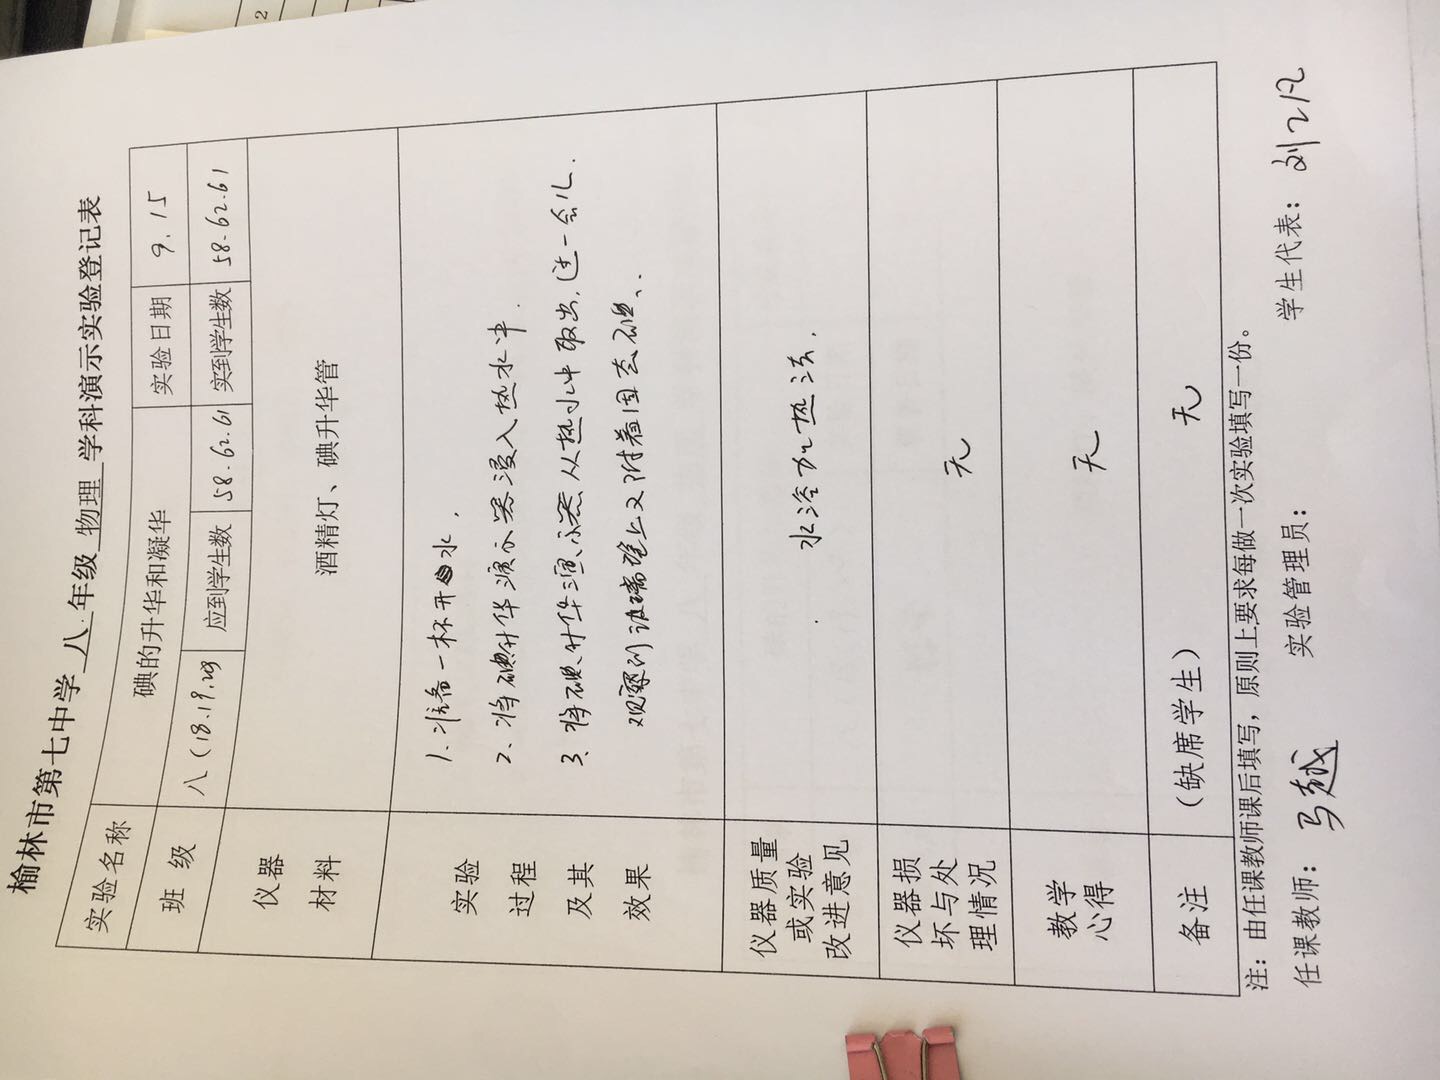 榆林市第七中学 八 年级 物理 学科演示实验登记表
实验名称 碘的升华和凝华 实验日期 9.15
班 级 八(18.19.29 应到学生数 58.62.61 实到学生数 58.62.61
仪器
材料
酒精灯、碘升华管
实验
过程
及其
效果
1、准备一杯开水,
2、将碘升华演示器浸入热水中.
3、将碘升华演示器从热水中取出,过一会儿.
观察到玻璃壁上又附着固态碘、
仪器质量
或实验
改进意见
水浴加热法,
仪器损
坏与处
理情况
无
教学
心得
无
备注 (缺席学生) 无
注:由任课教师课后填写,原则上要求每做一次实验填写一份。
任课教师: 马越 实验管理员: 学生代表: 刘
2